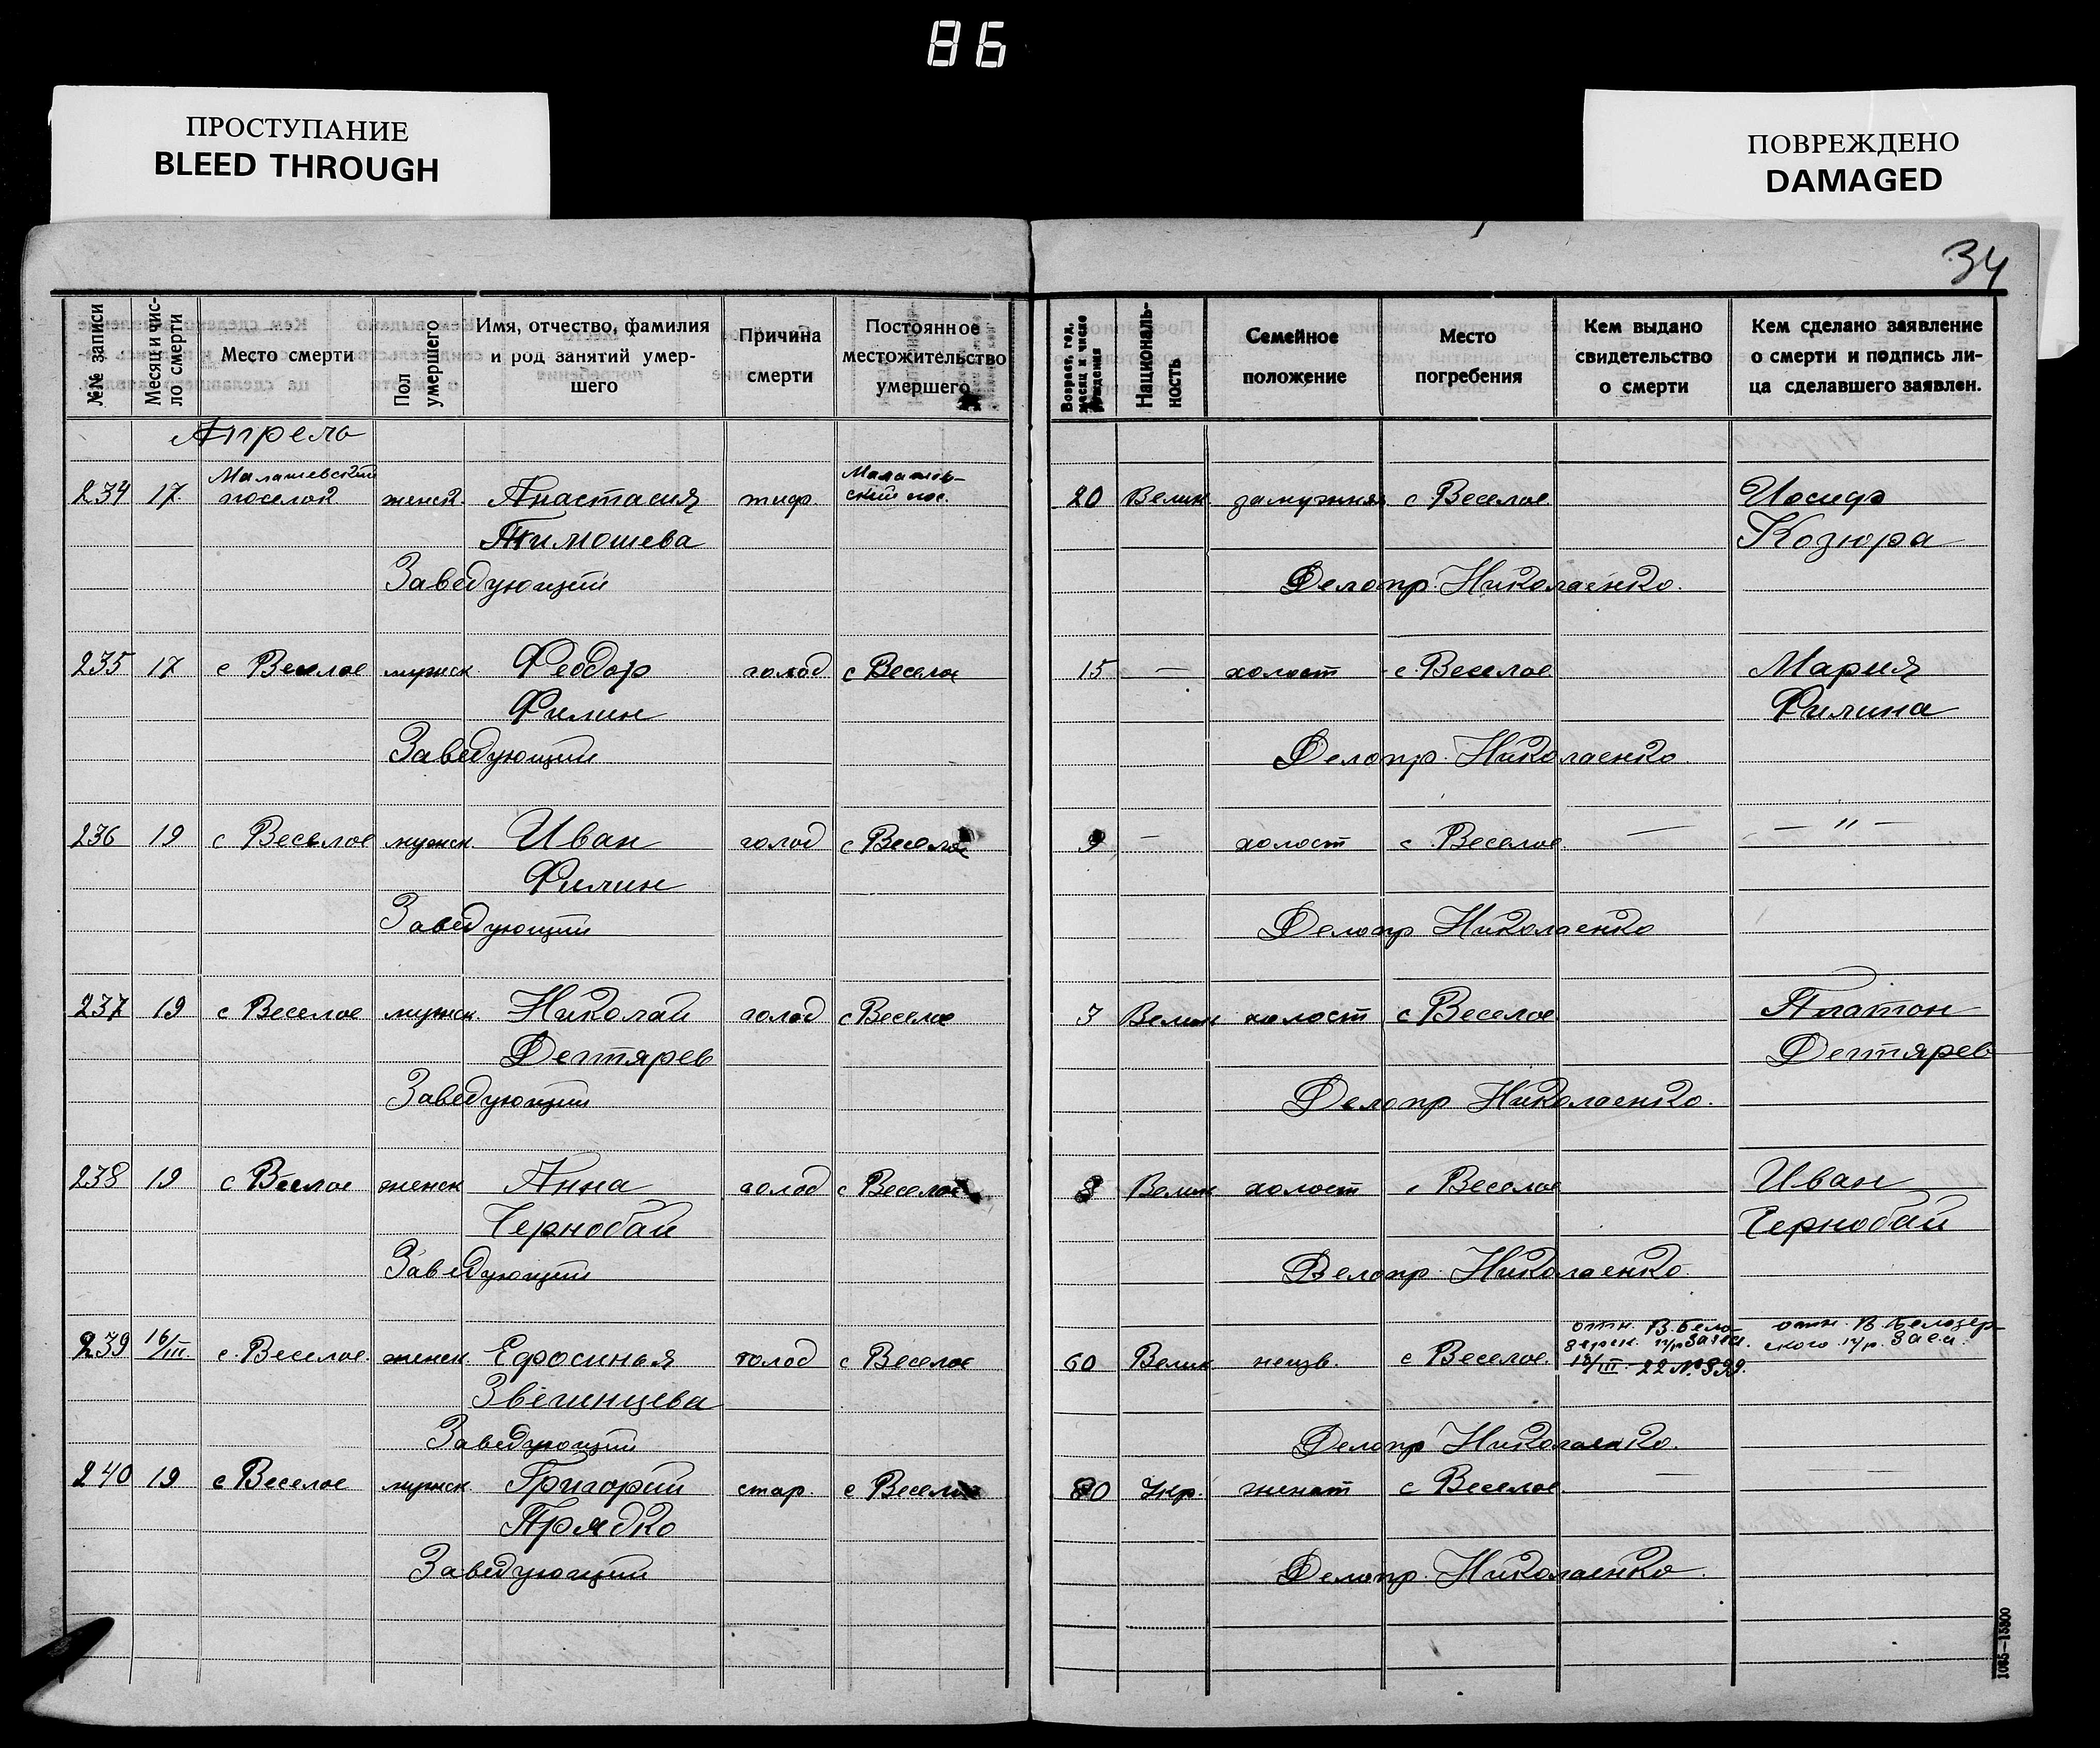 86
ПРОСТУПАНИЕ
BLEED THROUGH
ПОВРЕЖДЕНО
DAMAGED
34
№№ записи
Месяц и чис-
ло смерти
Место смерти
Пол
умершего
Имя, отчество, фамилия
и род занятий умер-
шего
Причина
смерти
Постоянное
местожительство
умершего
Возраст, год,
месяц и число
рождения
Националь-
ность
Семейное
положение
Место
погребения
Кем выдано
свидетельство
о смерти
Кем сделано заявление
о смерти и подпись ли-
ца сделавшего заявлен.
Апрель
Малашевский Малашев-
234 17 поселок женск. Анастасия тиф. ский пос. 20 Велик замужняя с Веселое Иосиф
Тимошева Козюра
Заведующий Делопр. Николаенко.
235 17 с Веселое мужск. Феодор голод с Веселое 15 — холост с. Веселое Мария
Филин Филина
Заведующий Делопр. Николаенко.
236 19 с Веселое мужск. Иван голод с Веселое 9 — холост с. Веселое — — " —
Филин
Заведующий Делопр Николаенко
237 19 с Веселое мужск. Николай голод с Веселое 7 Велик холост с Веселое Платон
Дегтярев Дегтярев
Заведующий Делопр Николаенко.
238 19 с Веселое женск Анна голод с Веселое 8 Велик холост с Веселое Иван
Чернобай Чернобай
Заведующий Делопр. Николаенко.
отн. В. Бело- отн. В. Белозер-
зерск. п/р Загса. ского п/р. Загса.
239 16/III с. Веселое. женск. Ефросинья голод с Веселое 60 Велик неизв. с Веселое. /III 22 № 899.
Звегинцева
Заведующий Делопр Николаенко.
240 19 с Веселое мужск Григорий стар. с Веселое 80 Укр. женат с Веселое — — —
Прядко
Заведующий Делопр. Николаенко.
1085—15800